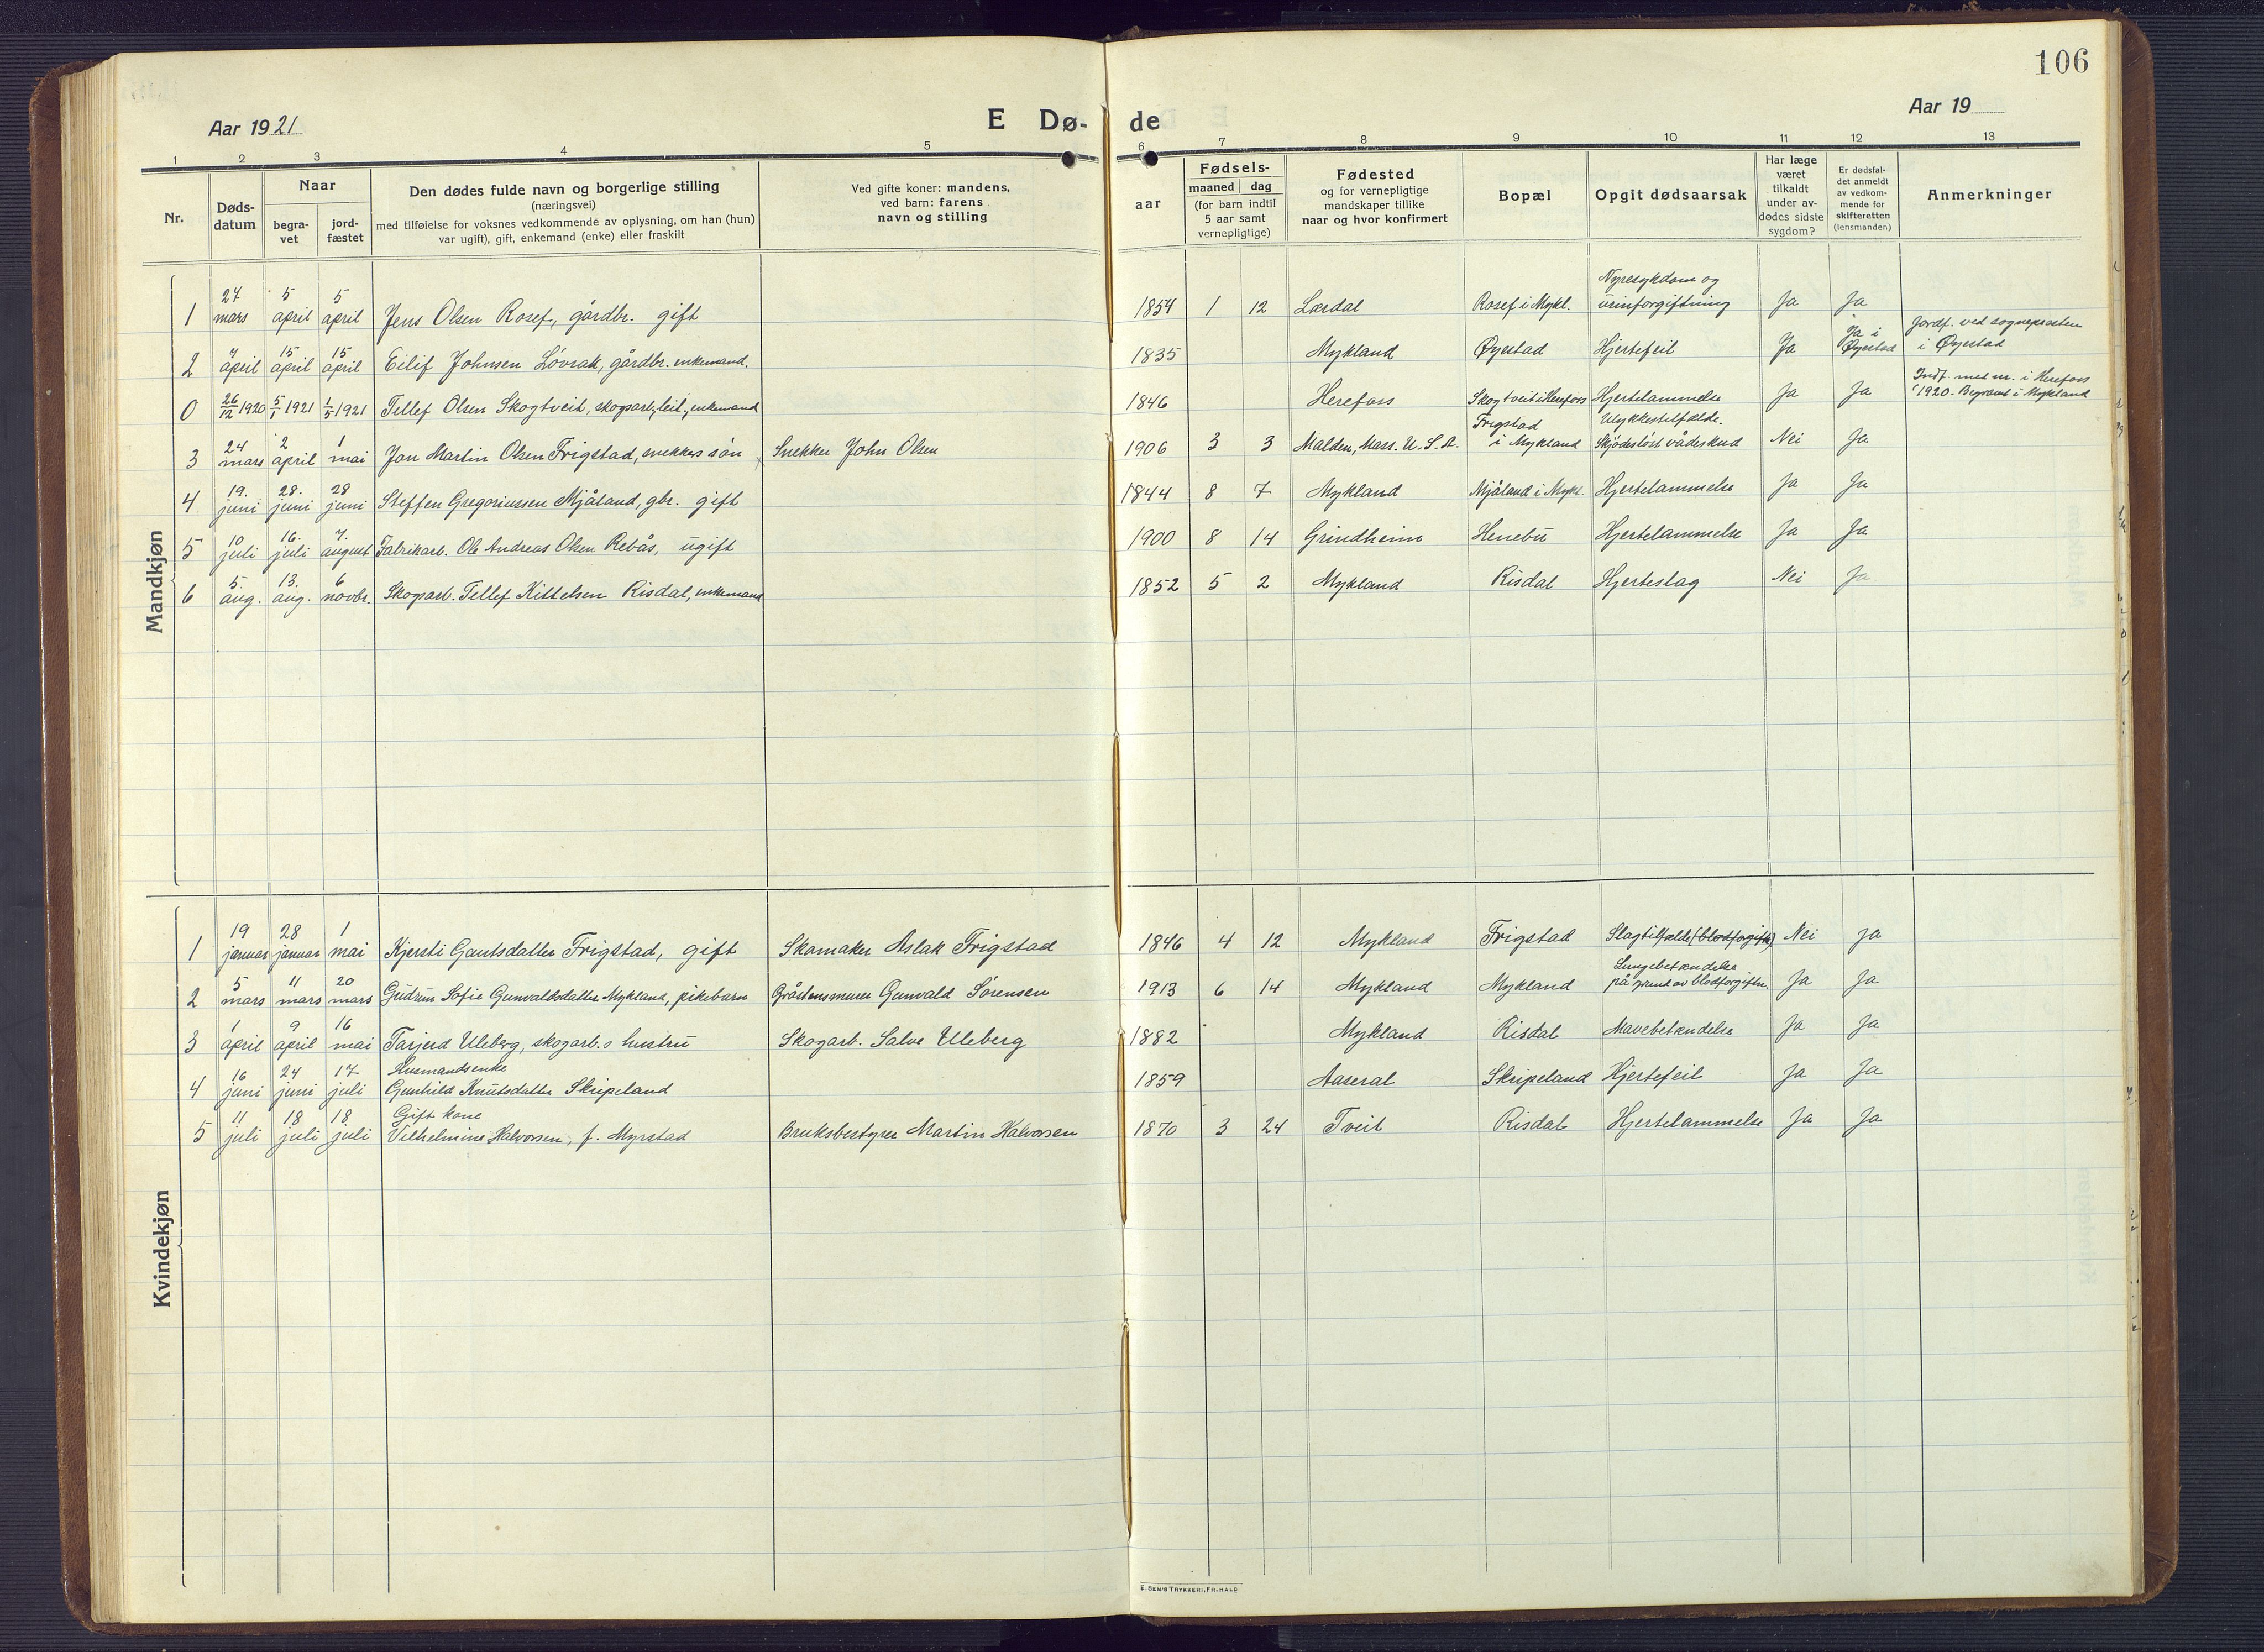 106
Aar 1921
E Dø-
de
Aar 19
1 2 3 4 5 6 7 8 9 10 11 12 13
Nr.
Døds-
datum
Naar
begra-
vet
jord-
fæstet
Den dødes fulde navn og borgerlige stilling
(næringsvei)
med tilføielse for voksnes vedkommende av oplysning, om han (hun)
var ugift), gift, enkemand (enke) eller fraskilt
Ved gifte koner: mandens,
ved barn: farens
navn og stilling
aar
Fødsels-
maaned dag
(for barn indtil
5 aar samt
vernepligtige)
Fødested
og for vernepligtige
mandskaper tillike
naar og hvor konfirmert
Bopæl
Opgit dødsaarsak
Har læge
været
tilkaldt
under av-
dødes sidste
sygdom?
Er dødsfal-
det anmeldt
av vedkom-
mende for
skifteretten
(lensmanden)
Anmerkninger
Mandkjøn
1 24 mars 5 april 5 april Jens Olsen Rosef, gårdbr. gift 1854 1 12 Lærdal Rosef i Mykl. Nyresykdom og urinforgiftning Ja Ja
2 7 april 15 april 15 april Eilif Johnsen Lövrak, gårdbr. enkemand. 1835 Mykland Øyestad Hjertefeil Ja Ja i Øyestad Jordf. ved sognepresten i Øyestad
0 26/12 1920 5/1 1921 1/5 1921 Tellef Olsen Skogtveit, skogsarb., leil., enkemand 1846 Herefoss Skogtveit i Herefoss Hjertelammelse Ja Ja Indf. met nr. i Herefoss 1920. Begravet i Mykland
3 24 mars 2 april 1 mai Jan Martin Olsen Frigstad, snekkers sön Snekker John Olsen 1906 3 3 Malden, Mass. U. S. A. Frigstad i Mykland Ulykkestilfælde. Skjödeslöst vådeskud Nei Ja
4 19. juni 28. juni 28 juni Steffen Gregoriussen Mjåland, gbr. gift 1844 8 7 Mykland Mjåland i Mykl. Hjertelammelse Ja Ja
5 10 juli 16. juli 7. august Fabrikarb. Ole Andreas Olsen Rebås, ugift 1900 8 14 Grindheim Henebu Hjertelammelse Ja Ja
6 5. aug. 13. aug. 6 novbr. Skogsarb. Tellef Kittelsen Risdal, enkemand 1852 5 2 Mykland Risdal Hjerteslag Nei Ja
Kvindekjøn
1 19 januar 28 januar 1 mai Kjersti Gautsdatter Frigstad, gift Skomaker Aslak Frigstad 1846 4 12 Mykland Frigstad Slagtilfælde (blodforgiftn) Nei Ja
2 5 mars 11 mars 20 mars Gudrun Sofie Gunvaldsdatter Mykland, pikebarn Gråstensmurer Gunvald Sörensen 1913 6 14 Mykland Mykland Lungebetændelse på grund av blodforgiftn. Ja Ja
3 1 april 9 april 16 mai Tarjerd Uleberg, skogarb.s hustru Skogarb. Salve Uleberg 1882 Mykland Risdal Mavebetændelse Ja Ja
4 16 juni 24 juni 17 juli Husmandsenke Gunhild Knutsdatter Skripeland 1859 Aaseral Skripeland Hjertefeil Ja Ja
5 11 juli 18 juli 18. juli Gift kone Vilhelmine Halvorsen, f. Myrstad Bruksbestyrer Martin Halvorsen 1870 3 24 Tveit Risdal Hjertelammelse Ja Ja
E. SEM'S TRYKKERI, FR.HALD